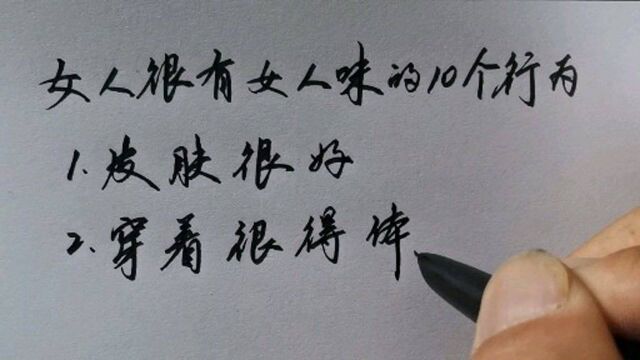 女人很有女人味的10个行为
1.皮肤很好
2.穿着很得体